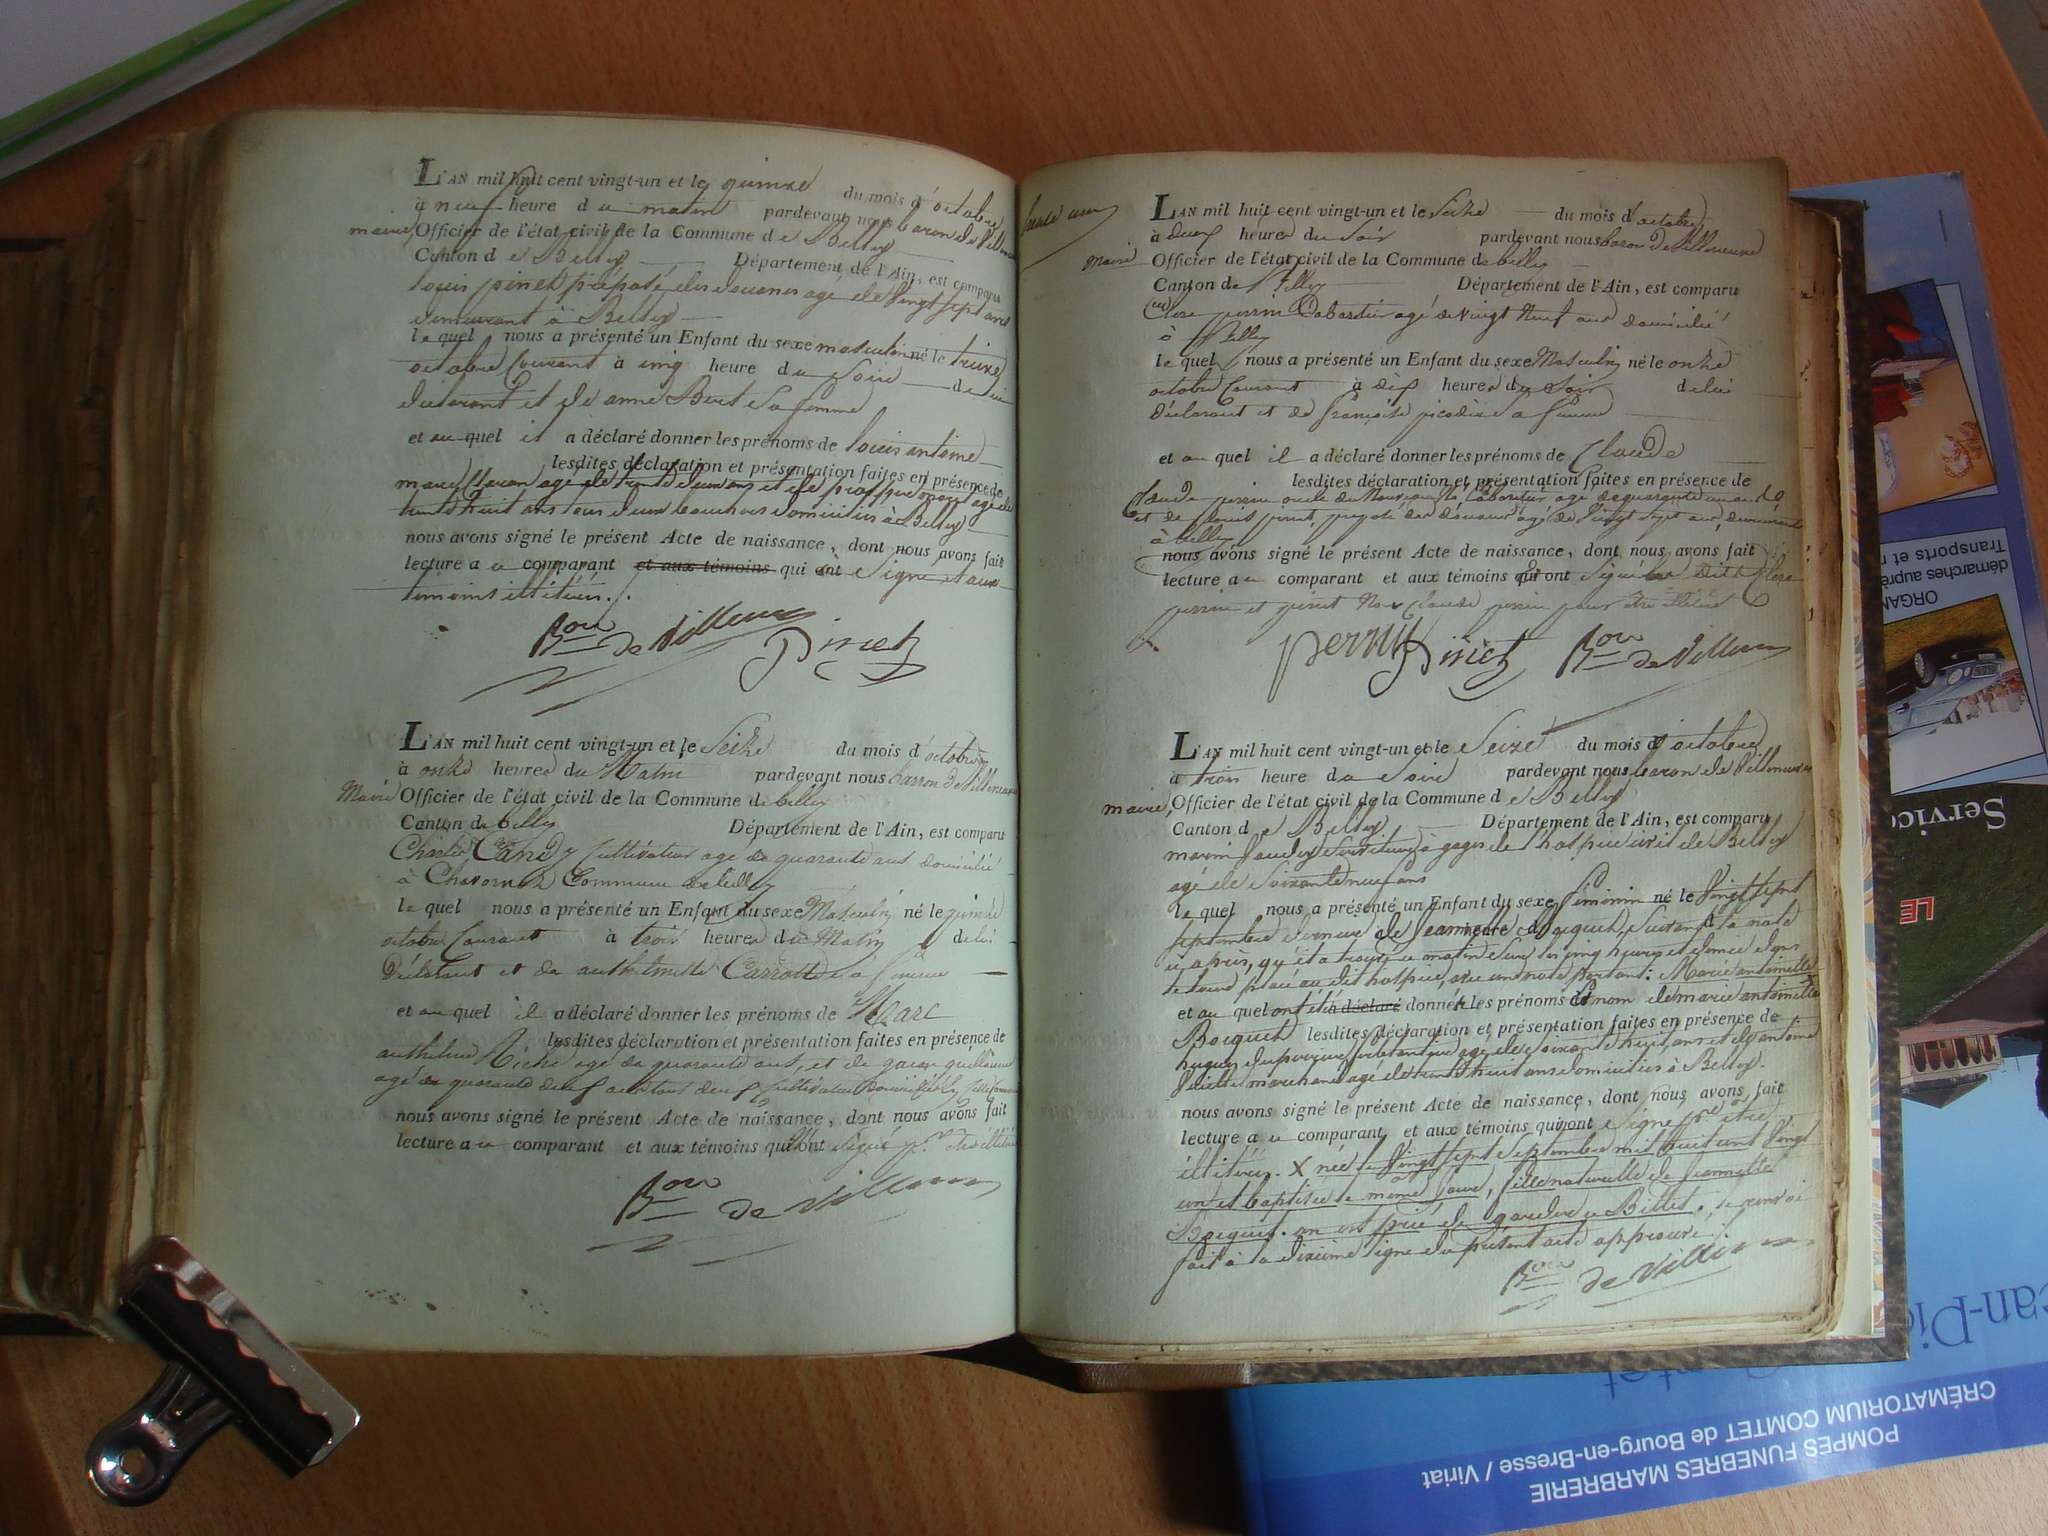 L'AN mil huit cent vingt-un et le quinze du mois d'octobre
à neuf heure du matin pardevant nous baron de Villeneuve
maire, Officier de l'état civil de la Commune de Belley
Canton de Belley Département de l'Ain, est comparu
louis pinet préposé des douanes agé de vingt sept ans
demeurant à Belley
lequel nous a présenté un Enfant du sexe masculin né le treize
octobre courant à cinq heure du soir de lui
déclarant et de anne Bert sa femme
et au quel il a déclaré donner les prénoms de louis antoine
lesdites déclaration et présentation faites en présence de
agé de trente deux ans et de agé de
trente huit ans tous deux domiciliés à Belley
nous avons signé le présent Acte de naissance, dont nous avons fait
lecture au comparant et aux témoins qui ont signé et aux
témoins illitérés.
Bon de Villeneuve Pinet
L'AN mil huit cent vingt-un et le Seize du mois d'octobre
à onze heures du Matin pardevant nous barron de Villeneuve
Maire Officier de l'état civil de la Commune de belley
Canton de belley Département de l'Ain, est comparu
Candy Cultivateur agé de quarante ans domicilié
à Chavornex Commune de belley
le quel nous a présenté un Enfant du sexe Masculin né le quinze
octobre Courant à trois heures du Matin de lui
Déclarant et de anthelmette Carrotte sa femme
et au quel il a déclaré donner les prénoms de Marc
lesdites déclaration et présentation faites en présence de
anthelme Riche agé de quarante ans, et de guillaume
agé de quarante deux ans tous deux Cultivateurs
nous avons signé le présent Acte de naissance, dont nous avons fait
lecture au comparant et aux témoins qui n'ont signé pr être illitérés
Bon de Villeneuve
L'AN mil huit cent vingt-un et le Seize du mois d'octobre
à deux heures du soir pardevant nous baron de Villeneuve
Maire Officier de l'état civil de la Commune de belley
Canton de belley Département de l'Ain, est comparu
perrin Cabaretier agé de vingt neuf ans domicilié
à Belley
le quel nous a présenté un Enfant du sexe Masculin né le onze
octobre Courant à dix heures du Soir de lui
Déclarant et de françoise picod sa femme
et au quel il a déclaré donner les prénoms de Claude
lesdites déclaration et présentation faites en présence de
Claude perrin oncle du Nouveau né laboureur agé de quarante un ans
et de louis pinet, préposé des douanes agé de vingt sept ans, demeurant
à belley
nous avons signé le présent Acte de naissance, dont nous avons fait
lecture au comparant et aux témoins qui ont signé
perrin et pinet Non Claude perrin pour être illitéré
perrin Pinet Bon de Villeneuve
L'AN mil huit cent vingt-un et le Seize du mois d'octobre
à trois heure du Soir pardevant nous baron de Villeneuve
maire, Officier de l'état civil de la Commune de Belley
Canton de Belley Département de l'Ain, est comparu
marin serviteur à gages de l'hospice civil de Belley
agé de soixante neuf ans
le quel nous a présenté un Enfant du sexe féminin né le vingt sept
septembre dernier de Jeannette Bosquet, suivant la note
ci après, qui été trouvé ce matin sur les cinq heures et demie dans
le tour placé au dit hospice, avec une note portant: Marie antoinette
et au quel ont été a déclaré donner les prénoms et nom de marie antoinette
Bosquet lesdites déclaration et présentation faites en présence de
hugues agé de soixante huit ans et de antoine
marchand agé de trente huit ans domiciliés à Belley.
nous avons signé le présent Acte de naissance, dont nous avons fait
lecture au comparant et aux témoins qui n'ont signé pr être
illitérés. X née le vingt sept septembre mil huit cent vingt
un et baptisée le même jour, fille naturelle de Jeannette
Bosquet. on est prié de garder ce Billet. le renvoi
fait à la dixième ligne du présent acte approuvé.
Bon de Villeneuve
démarches auprès
Transports et
ORGAN
Service
LE
POMPES FUNEBRES MARBRERIE
CRÉMATORIUM COMTET de Bourg-en-Bresse / Viriat